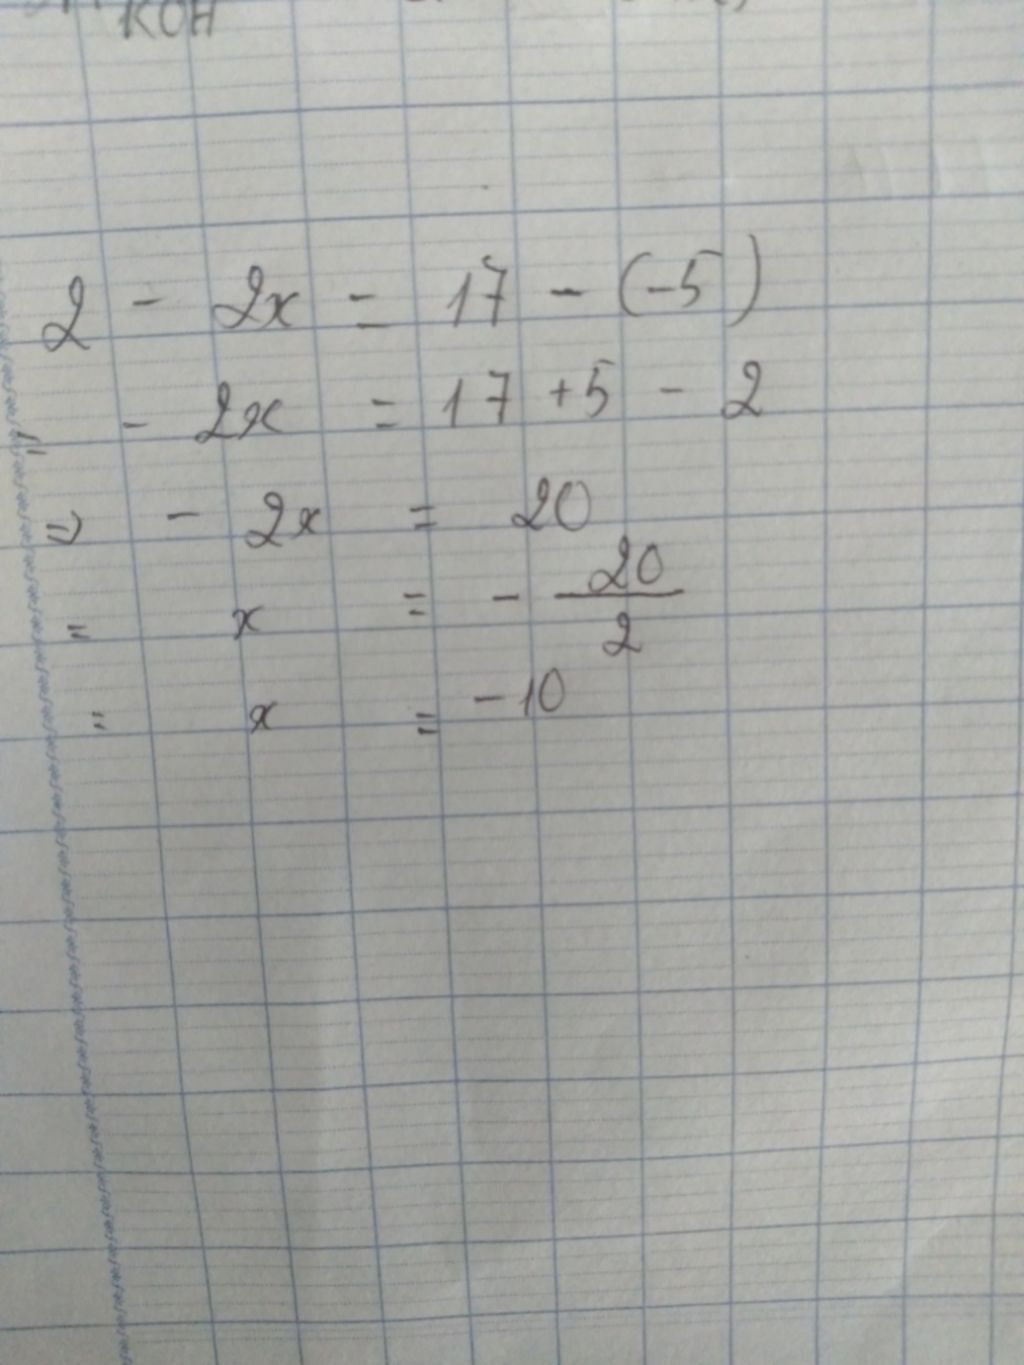 KOH
2 - 2x = 17 - (-5)
" - 2x = 17 + 5 - 2
=> - 2x = 20
" x = - 20/2
" x = -10